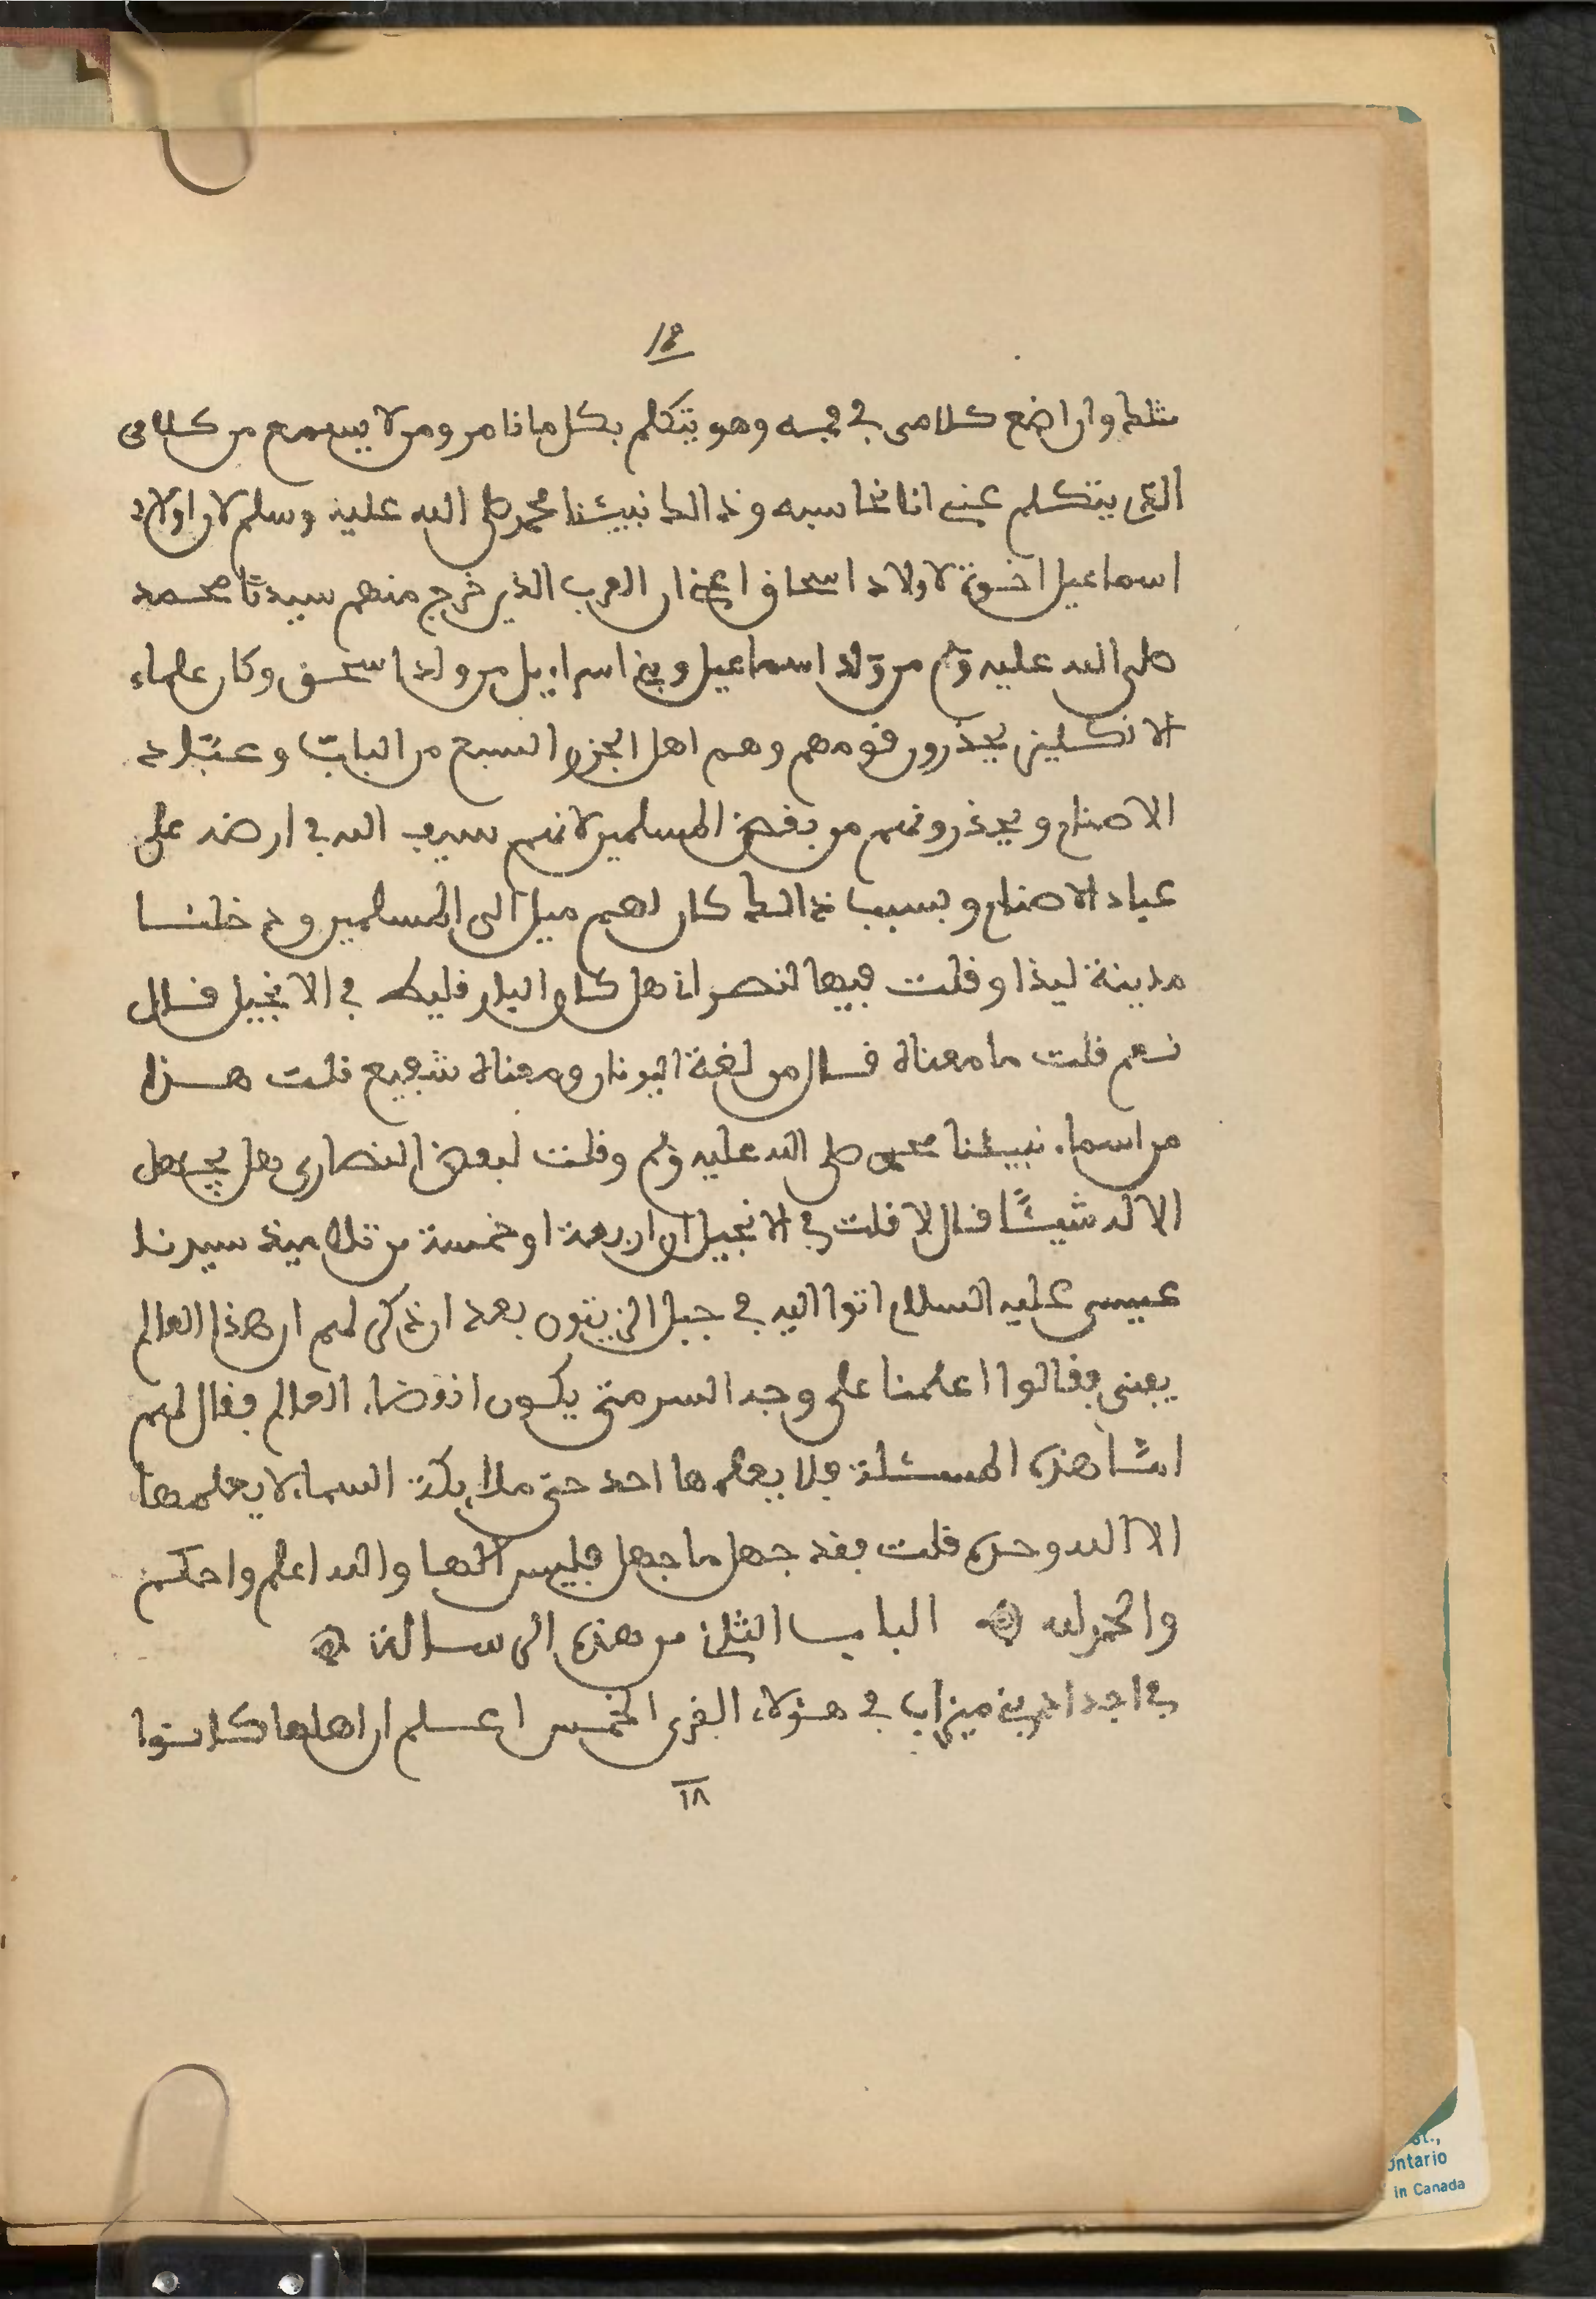 18
مثلك وان اضع كلامى في فمه وهو يتكلم بكل ما نامر ومن لا يسمع من كلامى
التى يتكلم عني انا نحاسبه وذالك نبيئنا محمد صلى الله عليه وسلم لان اولاد
اسماعيل اخوة لاولاد اسحاق اعني ان العرب الذين خرج منهم سيدنا محمد
صلى الله عليه وسلم من ولد اسماعيل وبني اسراءيل من ولد اسحق وكان علماء
الانكليز يحذرون قومهم وهم اهل الجزر السبع من الباب وعباد
الاصنام ويحذرونهم من بغض المسلمين لانهم سيف الله في ارضه على
عباد الاصنام وبسبب ذالك كان لهم ميل الى المسلمين ودخلنا
مدينة ليذا وقلت فيها لنصراني هل كان البارقليط في الانجيل قال
نعم قلت ما معناه قال من لغة اليونان ومعناه شفيع قلت هذا
من اسماء نبيئنا محمد صلى الله عليه وسلم وقلت لبعض النصارى هل يجهل
الالله شيئًا قال لا قلت في الانجيل ان اربعة او خمسة من تلاميذ سيدنا
عيسى عليه السلام اتوا اليه في جبل الزيتون بعد ان ذكر لهم ان هذا العالم
يفنى فقالوا اعلمنا على وجه السر متى يكون انقضاء العالم فقال لهم
امّا هذه المسئلة فلا يعلمها احد حتى ملايكة السماء لا يعلمها
الا الله وحده قلت فقد جهل ما جهل فليس الها والله اعلم واحكم
والحمد لله الباب الثاني من هذه الرسالة
في اجداد بني ميزاب في هؤلاء القرى الخمس اعلم ان اهلها كانوا
١٨